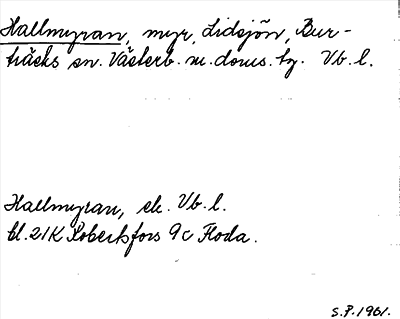 Hallmyran, myr, Lidsjön, Bur-
träsks sn. Västerb. n. doms. tg. Vb. l.
Hallmyran, ek. Vb. l.
bl. 21K Robertsfors 9c Floda.
S.P. 1961.